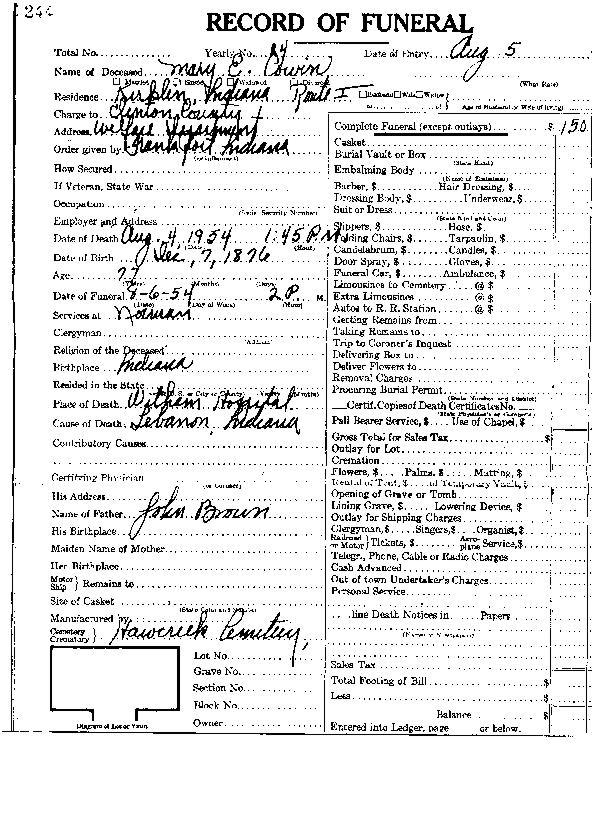 244
RECORD OF FUNERAL
Total No. Yearly No. 24 Date of Entry. Aug 5
Name of Deceased Mary E.
Married Single Widowed Divorced (What Race)
Residence Kirklin, Indiana Route I Husband Wife Widow
Charge to Clinton County + Age of Husband or Wife (if living)
Address Welfare Department
Order given by Frankfort Indiana
How Secured
If Veteran, State War
Occupation
Employer and Address (Social Security Number)
Date of Death Aug. 4, 1954 1:45 P.M.
(Date) (Hour)
Date of Birth Dec, 7, 1876
Age 77
(Years) (Months) (Days)
Date of Funeral 8-6-54 2 P. M.
(Date) (Day of Week) (Hour)
Services at
Clergyman
(Address)
Religion of the Deceased
Birthplace Indiana
Resided in the State
Place of Death Witham Hospital
Cause of Death Lebanon, Indiana
Contributory Causes
Certifying Physician
(or Coroner)
His Address
Name of Father John Brown
His Birthplace
Maiden Name of Mother
Her Birthplace
Motor Ship } Remains to
Size of Casket
(State Color and Number)
Manufactured by
Cemetery Crematory } Hawcreek Cemetery,
Lot No.
Grave No.
Section No.
Block No.
Owner
Diagram of Lot or Vault
Complete Funeral (except outlays) $ 150
Casket
Burial Vault or Box
(State Kind)
Embalming Body
(Name of Embalmer)
Barber, $ Hair Dressing, $
Dressing Body, $ Underwear, $
Suit or Dress
(State Kind and Color)
Slippers, $ Hose, $
Folding Chairs, $ Tarpaulin, $
Candelabrum, $ Candles, $
Door Spray, $ Gloves, $
Funeral Car, $ Ambulance, $
Limousines to Cemetery @ $
Extra Limousines @ $
Autos to R. R. Station @ $
Getting Remains from
Taking Remains to
Trip to Coroner's Inquest
Delivering Box to
Deliver Flowers to
Removal Charges
Procuring Burial Permit
(State Number and District)
Certif. Copies of Death Certificates No.
(State Physician's or Coroner's)
Pall Bearer Service, $ Use of Chapel, $
Gross Total for Sales Tax $
Outlay for Lot
Cremation
Flowers, $ Palms, $ Matting, $
Rental of Tent, $ of Temporary Vault, $
Opening of Grave or Tomb
Lining Grave, $ Lowering Device, $
Outlay for Shipping Charges
Clergyman, $ Singers, $ Organist, $
Railroad or Motor } Tickets, $ Aeroplane Service, $
Telegr., Phone, Cable or Radio Charges
Cash Advanced
Out of town Undertaker's Charges
Personal Service
line Death Notices in Papers
(Names of Newspapers)
Sales Tax
Total Footing of Bill $
Less $
Balance $
Entered into Ledger, page or below.